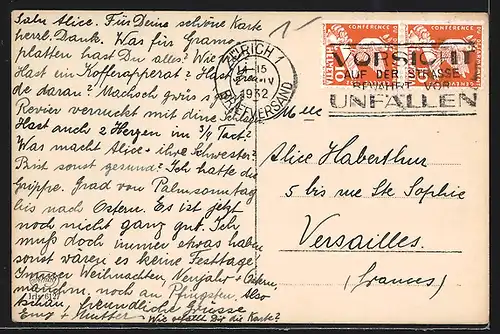 Salu Alice. Für Deine schöne Karte
herzl. Dank. Was für Gramo-
platten hast Du alles? Wie
Hast ein Kofferapperat? Hast
de daran? Machsch
Revier vermuckt mit dine
Hast auch 2 Herzen im 3/4 Takt?
Was macht Alice + ihre Schwester?
Bist sonst gesund? Ich hatte die
Grippe. Grad von Palmsonntag
bis nach Ostern. Es ist jetzt
noch nicht ganz gut. Ich
muss doch immer etwas haben
sonst wären es keine Festtage
Immer Weihnachten, Neujahr + Ostern,
manchm. noch an Pfingsten. Also
freundliche Grüsse
+ Mutter Wie gefällt Dir die Karte?
ZÜRICH 1
1932
BRIEFVERSAND
CONFERENCE
VORSICHT
AUF DER STRASSE
BEWAHRT VOR
UNFÄLLEN
HELVETIA
10
Mlle
Alice Haberthur
5 bis rue Ste Sophie
Versailles.
(France)